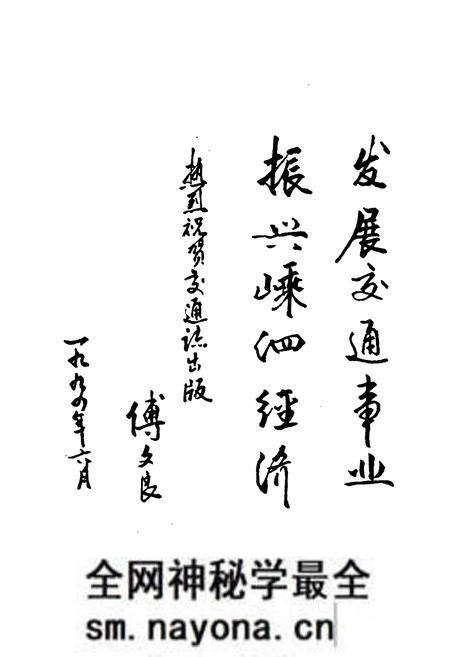 发展交通事业
振兴嵊泗经济
热烈祝贺交通志出版
傅文良
一九九四年六月
全网神秘学最全
sm.nayona.cn